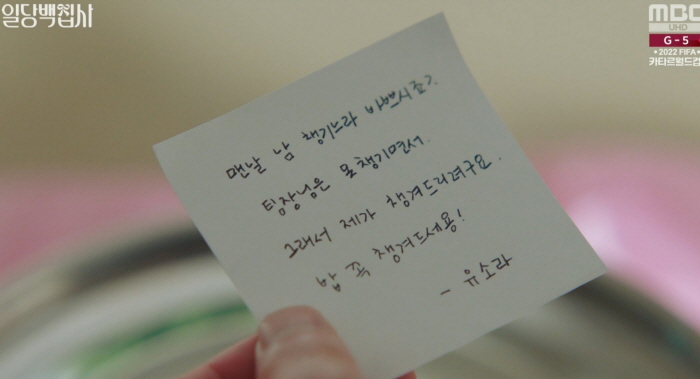 일당백집사
MBC
UHD
G-5
•2022 FIFA•
카타르월드컵
맨날 남 챙기느라 바쁘시죠?
팀장님은 못 챙기면서.
그래서 제가 챙겨드리려구요.
밥 꼭 챙겨드세용!
- 유소라